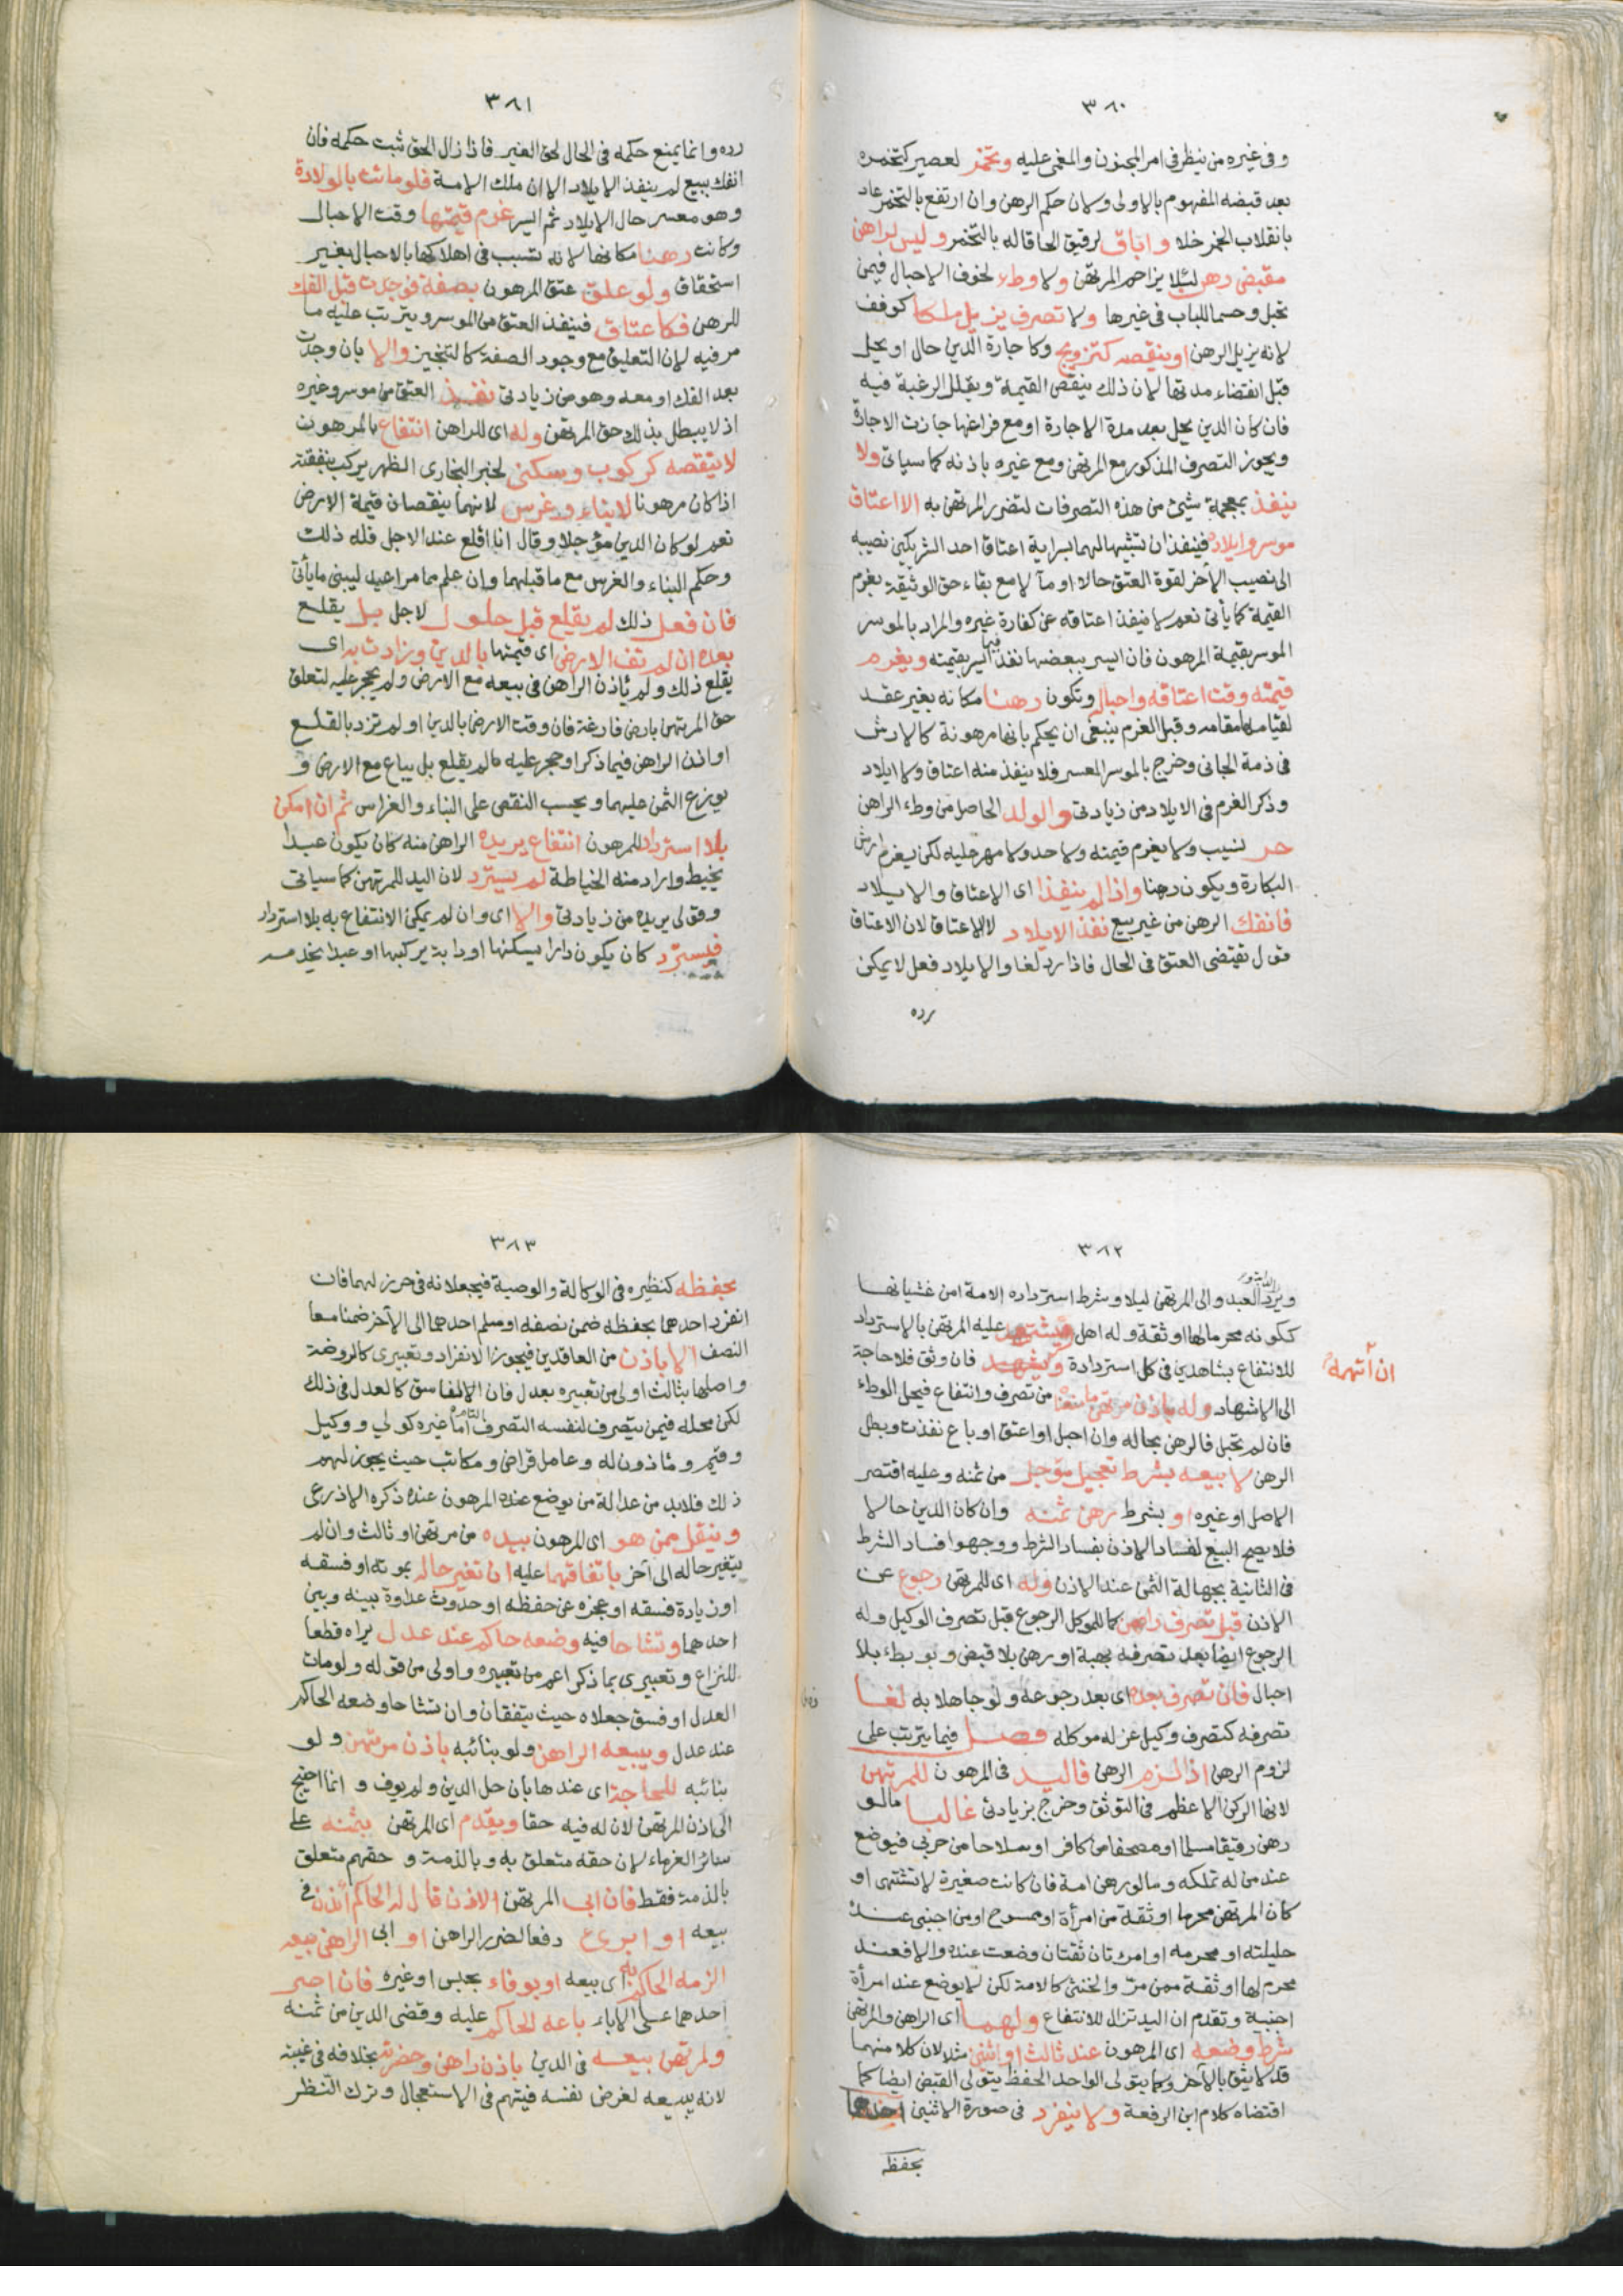 ٣٨٠
وفى غيره من ينظر فى امر المجنون والمغمى عليه وتخمر لعصير كتخمره
بعد قبضه المفهوم بالاولى ولان حكم الرهن وان ارتفع بالتخمر عاد
بانقلاب الخمر خلا واباق لرقيق الحاقا له بالتخمر وليس لراهن
مقبض رهن لئلا يزاحم المرتهن ولا وطء لخوف الاحبال فيمن
تحبل وحسما للباب فى غيرها ولا تصرف يزيل ملكا كوقف
لانه يزيل الرهن او ينقصه كتزويج وكاجارة الدين حال او يحل
قبل انقضاء مدتها لان ذلك ينقص القيمة ويقلل الرغبة فيه
فان كان الدين يحل بعد مدة الاجارة او مع فراغها جازت الاجارة
ويجوز التصرف المذكور مع المرتهن ومع غيره باذنه كما سياتى ولا
ينفذ بمعجمة شيئ من هذه التصرفات لتضرر المرتهن به الا اعتاق
موسر وايلاده فينفذان تشبيها لهما بسراية اعتاق احد الشريكين نصيبه
الى نصيب الآخر لقوة العتق حالا او مآلا مع بقاء حق الوثيقة بغرم
القيمة كما يأتى نعم لا ينفذ اعتاقه عن كفارة غيره والمراد بالموسر
الموسر بقيمة المرهون فان ايسر ببعضها نفذ فيما ايسر بقيمته ويغرم
قيمته وقت اعتاقه واحباله وتكون رهنا مكانه بغير عقد
لقيامها مقامه وقبل الغرم ينبغى ان يحكم بانها مرهونة كالارش
فى ذمة الجانى وخرج بالموسر المعسر فلا ينفذ منه اعتاق ولا ايلاد
وذكر الغرم فى الايلاد من زيادتى والولد الحاصل من وطء الراهن
حر نسيب ولا يغرم قيمته ولا حد ولا مهر عليه لكن يغرم ارش
البكارة ويكون رهنا واذا لم ينفذا اى الاعتاق والايلاد
فانفك الرهن من غير بيع نفذ الايلاد لا الاعتاق لان الاعتاق
قول يقتضى العتق فى الحال فاذا رد لغا والايلاد فعل لا يمكن
رده
٣٨١
رده وانما يمنع حكمه فى الحال لحق الغير فاذا زال الحق ثبت حكمه فان
انفك ببيع لم ينفذ الايلاد الا ان ملك الامة فلو ماتت بالولادة
وهو معسر حال الايلاد ثم ايسر غرم قيمتها وقت الاحبال
وكانت رهنا مكانها لانه تسبب فى اهلاكها بالاحبال بغير
استحقاق ولو علق عتق المرهون بصفة فوجدت قبل الفك
للرهن فكاعتاق فينفذ العتق من الموسر ويترتب عليه ما
مر فيه لان التعليق مع وجود الصفة كالتنجيز والا بان وجدت
بعد الفك او معه وهو من زيادتى نفذ العتق من موسر وغيره
اذ لا يبطل بذلك حق المرتهن وله اى للراهن انتفاع بالمرهون
لا ينقصه كركوب وسكنى لخبر البخارى الظهر يركب بنفقته
اذا كان مرهونا لا بناء وغرس لانهما ينقصان قيمة الارض
نعم لو كان الدين مؤجلا وقال انا اقلع عند الاجل فله ذلك
وحكم البناء والغرس مع ما قبلهما وان علم مما مر اعيد ليبنى ما يأتى
فان فعل ذلك لم يقلع قبل حلول لاجل بل يقلع
بعده ان لم تف الارض اى قيمتها بالدين وزادت به اى
يقلع ذلك ولم ياذن الراهن فى بيعه مع الارض ولم يحجر عليه لتعلق
حق المرتهن بارض فارغة فان وفت الارض بالدين او لم تزد بالقلع
او اذن الراهن فيما ذكر او حجر عليه لم يقلع بل يباع مع الارض و
يوزع الثمن عليهما ويحسب النقص على البناء والغراس ثم ان امكن
بلا استرداد للمرهون انتفاع يريده الراهن منه كان يكون عبدا
يخيط واراد منه الخياطة لم يسترد لان اليد للمرتهن كما سياتى
وقولى يريده من زيادتى والا اى وان لم يمكن الانتفاع به بلا استرداد
فيسترد كان يكون دارا يسكنها او دابة يركبها او عبدا يخدمه
٣٨٢
ويرد الدابة والعبد الى المرتهن ليلا وشرط استرداده الامة امن غشيانها
ككونه محرما لها او ثقة وله اهل ويشهد عليه المرتهن بالاسترداد
ان اتهمه
للانتفاع بشاهدين فى كل استردادة فان وثق فلا حاجة
الى الاشهاد وله باذن مرتهن ما منعناه من تصرف وانتفاع فيحل الوطء
فان لم تحبل فالرهن بحاله وان احبل او اعتق او باع نفذت وبطل
الرهن لا بيعه بشرط تعجيل مؤجل من ثمنه وعليه اقتصر
الاصل او غيره او بشرط رهن ثمنه وان كان الدين حالا
فلا يصح البيع لفساد الاذن بفساد الشرط ووجهوا فساد الشرط
فى الثانية بجهالة الثمن عند الاذن وله اى للمرتهن رجوع عن
الاذن قبل تصرف راهن كما للموكل الرجوع قبل تصرف الوكيل وله
الرجوع ايضا بعد تصرفه بهبة او رهن بلا قبض وبوطء بلا
احبال فان تصرف بعده اى بعد رجوعه ولو جاهلا به لغا
تصرفه كتصرف وكيل عزله موكله فصل فيما يترتب على
لزوم الرهن اذا لزم الرهن فاليد فى المرهون للمرتهن
لانها الركن الاعظم فى التوثق وخرج بزيادتى غالبا ما لو
رهن رقيقا مسلما او مصحفا من كافر او سلاحا من حربى فيوضع
عند من له تملكه وما لو رهن امة فان كانت صغيرة لا تشتهى او
كان المرتهن محرما او ثقة من امرأة او ممسوح او من اجنبى عنده
حليلته او محرمه او امرتان ثقتان وضعت عنده والا فعند
محرم لها او ثقة ممن مر والخنثى كالامة لكن لا يوضع عند امرأة
اجنبية وتقدم ان اليد تزال للانتفاع ولهما اى الراهن والمرتهن
شرط وضعه اى المرهون عند ثالث او اثنين مثلا لان كلا منهما
قد لا يثق بالآخر وكما يتولى الواحد الحفظ يتولى القبض ايضا كما
اقتضاه كلام ابن الرفعة ولا ينفرد فى صورة الاثنين احدهما
بحفظه
٣٨٣
بحفظه كنظيره فى الوكالة والوصية فيجعلانه فى حرز لهما فان
انفرد احدهما بحفظه ضمن نصفه او سلم احدهما الى الآخر ضمنا معا
النصف الا باذن من العاقدين فيجوز الانفراد وتعبيرى كالروضة
واصلها بثالث اولى من تعبيره بعدل فان الفاسق كالعدل فى ذلك
لكن محله فيمن يتصرف لنفسه التصرف التام اما غيره كولي ووكيل
وقيم وماذون له وعامل قراض ومكاتب حيث يجوز لهم
ذلك فلابد من عدالة من يوضع عنده المرهون عنده ذكره الاذرعى
وينقل ممن هو اى المرهون بيده من مرتهن او ثالث وان لم
يتغير حاله الى آخر باتفاقهما عليه ان تغير حاله بموته او فسقه
او زيادة فسقه او عجزه عن حفظه او حدوث عداوة بينه وبين
احدهما وتشاحا فيه وضعه حاكم عند عدل يراه قطعا
للنزاع وتعبيرى بما ذكر اعم من تعبيره واولى من قوله ولو مات
العدل او فسق جعلاه حيث يتفقان وان تشاحا وضعه الحاكم
عند عدل ويبيعه الراهن ولو بنائبه باذن مرتهن ولو
بنائبه للحاجة اى عندها بان حل الدين ولم يوف وانما احتيج
الى اذن المرتهن لان له فيه حقا ويقدم اى المرتهن بثمنه على
سائر الغرماء لان حقه متعلق به وبالذمة وحقهم متعلق
بالذمة فقط فان ابى المرتهن الاذن قال له الحاكم ائذن فى
بيعه او ابرئ دفعا لضرر الراهن او ابى الراهن بيعه
الزمه الحاكم به اى بيعه او بوفاء بحبس او غيره فان اصر
احدهما على الاباء باعه الحاكم عليه وقضى الدين من ثمنه
ولمرتهن بيعه فى الدين باذن راهن وحضرته بخلافه فى غيبته
لانه يبيعه لغرض نفسه فيتهم فى الاستعجال وترك النظر